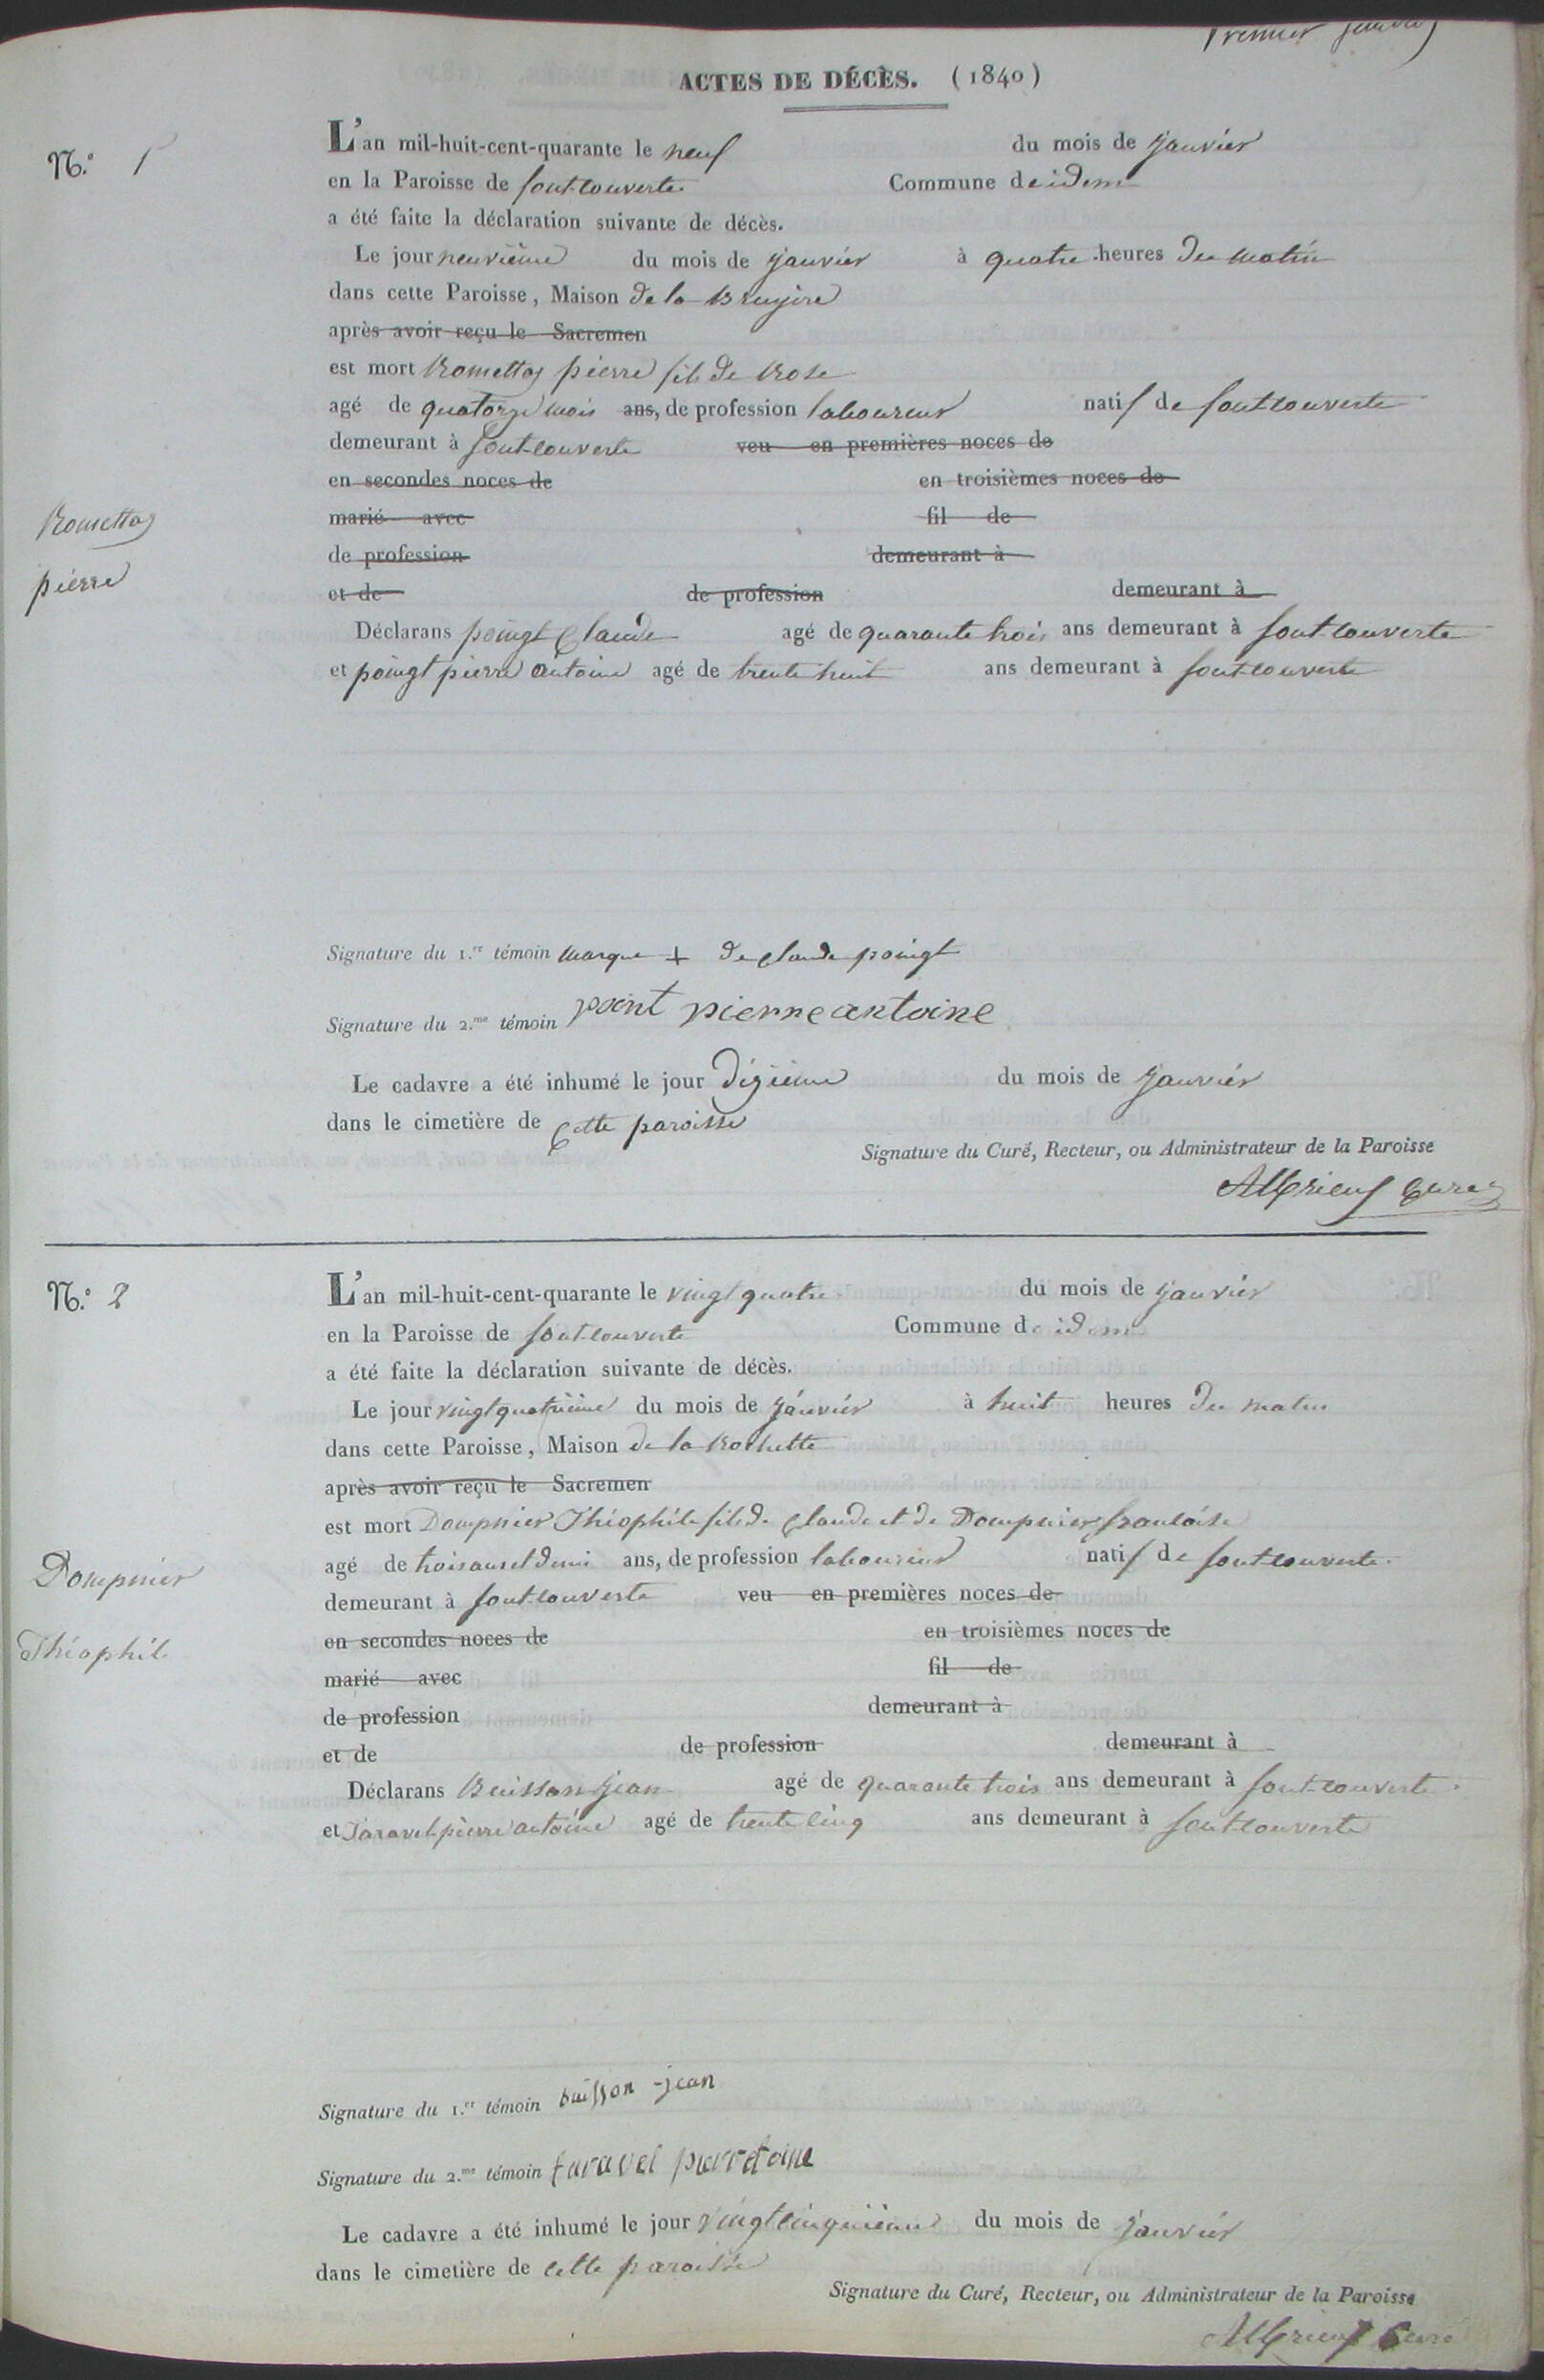 Premier
ACTES DE DÉCÈS. (1840)
N.º 1
L'an mil-huit-cent-quarante le neuf du mois de janvier
en la Paroisse de fontcouverte Commune de idem
a été faite la déclaration suivante de décès.
Le jour neuvième du mois de janvier à quatre heures du matin
dans cette Paroisse, Maison de la Bruyère
après avoir reçu le Sacremen
est mort Romettaz pierre fils de Rose
agé de quatorze mois ans, de profession laboureur natif de fontcouverte
demeurant à fontcouverte veu en premières noces de
en secondes noces de en troisièmes noces de
Romettaz
marié avec fil de
de profession demeurant à
pierre
et de de profession demeurant à
Déclarans poingt Claude agé de quarante trois ans demeurant à fontcouverte
et poingt pierre antoine agé de trente huit ans demeurant à fontcouverte
Signature du 1.er témoin marque + de claude poingt
Signature du 2.me témoin point pierre antoine
Le cadavre a été inhumé le jour dizième du mois de janvier
dans le cimetière de Cette paroisse
Signature du Curé, Recteur, ou Administrateur de la Paroisse
Curé
N.º 2
L'an mil-huit-cent-quarante le vingt quatre du mois de janvier
en la Paroisse de fontcouverte Commune de idem
a été faite la déclaration suivante de décès.
Le jour vingt quatrième du mois de janvier à huit heures du matin
dans cette Paroisse, Maison de la Rochette
après avoir reçu le Sacremen
est mort Dompnier Théophile fils de Claude et de Dompnier françoise
Dompnier
agé de trois ans et demi ans, de profession laboureur natif de fontcouverte
demeurant à fontcouverte veu en premières noces de
en secondes noces de en troisièmes noces de
Théophile
marié avec fil de
de profession demeurant à
et de de profession demeurant à
Déclarans Buisson jean agé de quarante trois ans demeurant à fontcouverte
et Taravel pierre antoine agé de trente cinq ans demeurant à fontcouverte
Signature du 1.er témoin buisson jean
Signature du 2.me témoin taravel pierretoine
Le cadavre a été inhumé le jour vingt cinquième du mois de janvier
dans le cimetière de cette paroisse
Signature du Curé, Recteur, ou Administrateur de la Paroisse
Curé